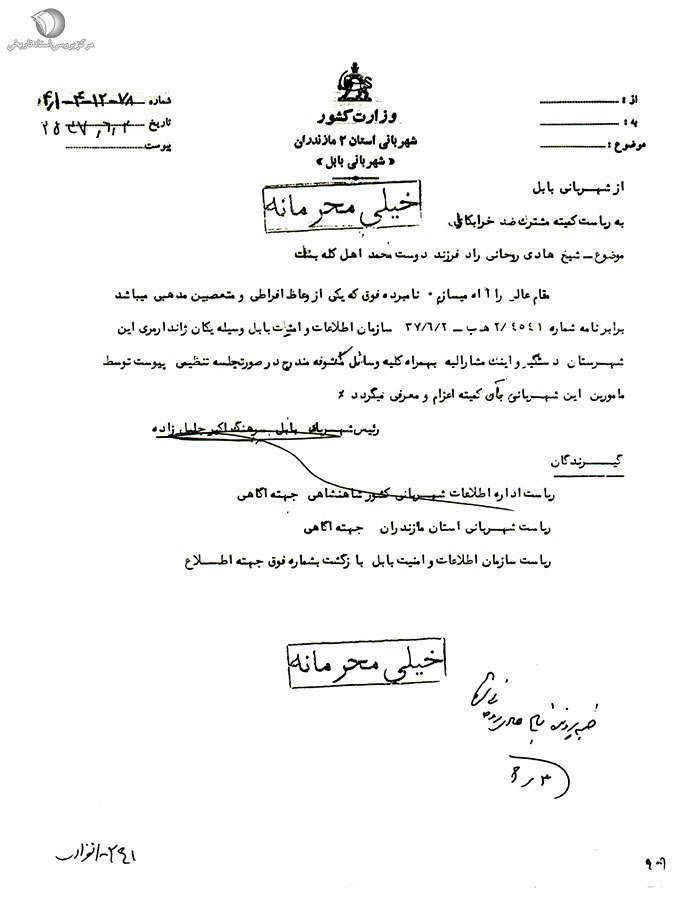 مرکز بررسی اسناد تاریخی
وزارت کشور
شهربانی استان ۲ مازندران
« شهربانی بابل »
از :
به :
موضوع :
شماره ۷۸-۱۲-۴-
تاریخ
پیوست
خیلی محرمانه
از شهربانی بابل
به ریاست کمیته مشترک ضد خرابکاری
موضوع ـ شیخ هادی روحانی راد فرزند دوست محمد اهل کله بست
مقام عالی را آگاه میسازم ۰ نامبرده فوق که یکی از وعاظ افراطی و متعصبین مذهبی میباشد
برابر نامه شماره ۲/۴۵۴۱ هـ ب ــ ۳۷/۶/۲ سازمان اطلاعات و امنیت بابل وسیله یکان ژاندارمری این
شهرستان دستگیر و اینک مشارالیه بهمراه کلیه وسائل مکشوفه مندرج در صورتجلسه تنظیمی پیوست توسط
مامورین این شهربانی بآن کمیته اعزام و معرفی میگردد ٪
رئیس شهربانی بابل سرهنگ اکبر جلیل زاده
گیرندگان
ریاست اداره اطلاعات شهربانی کشور شاهنشاهی جهته آگاهی
ریاست شهربانی استان مازندران جهته آگاهی
ریاست سازمان اطلاعات و امنیت بابل بازگشت بشماره فوق جهته اطلاع
خیلی محرمانه